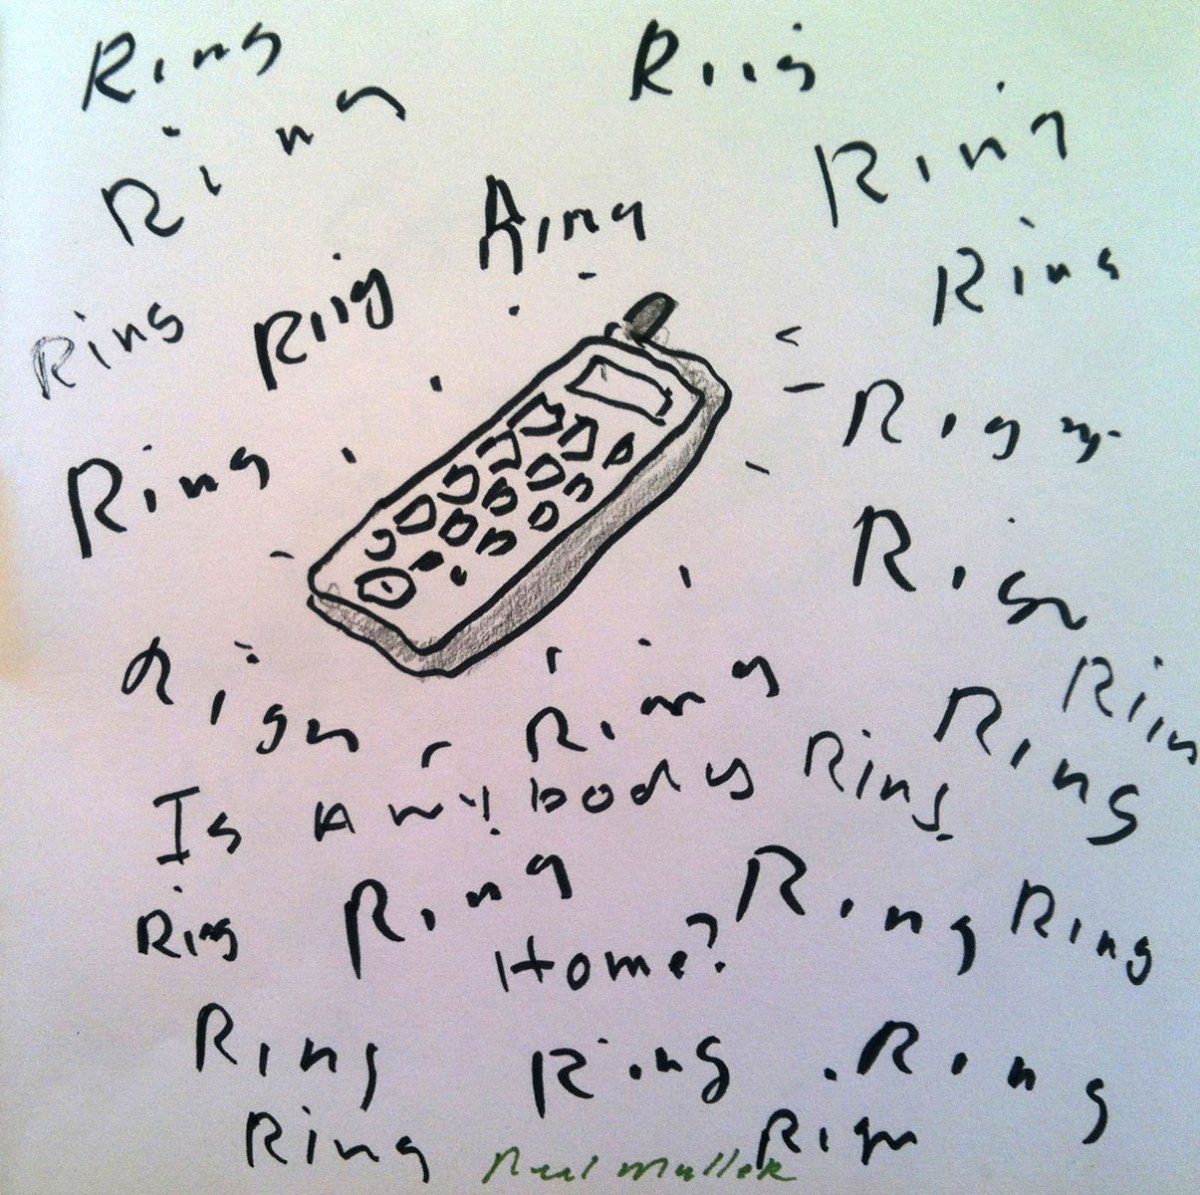 Ring
Riig
Ring
Ring
Ring
Ring
Ring
Riig
Rign
Ring
Rign
Rign
Ring
Riin
Ring
Is Anybody Ring
Ring
Ring
Ring
Ring
Home?
Ring
Ring
Ring
Ring
Rign
Neal Muller